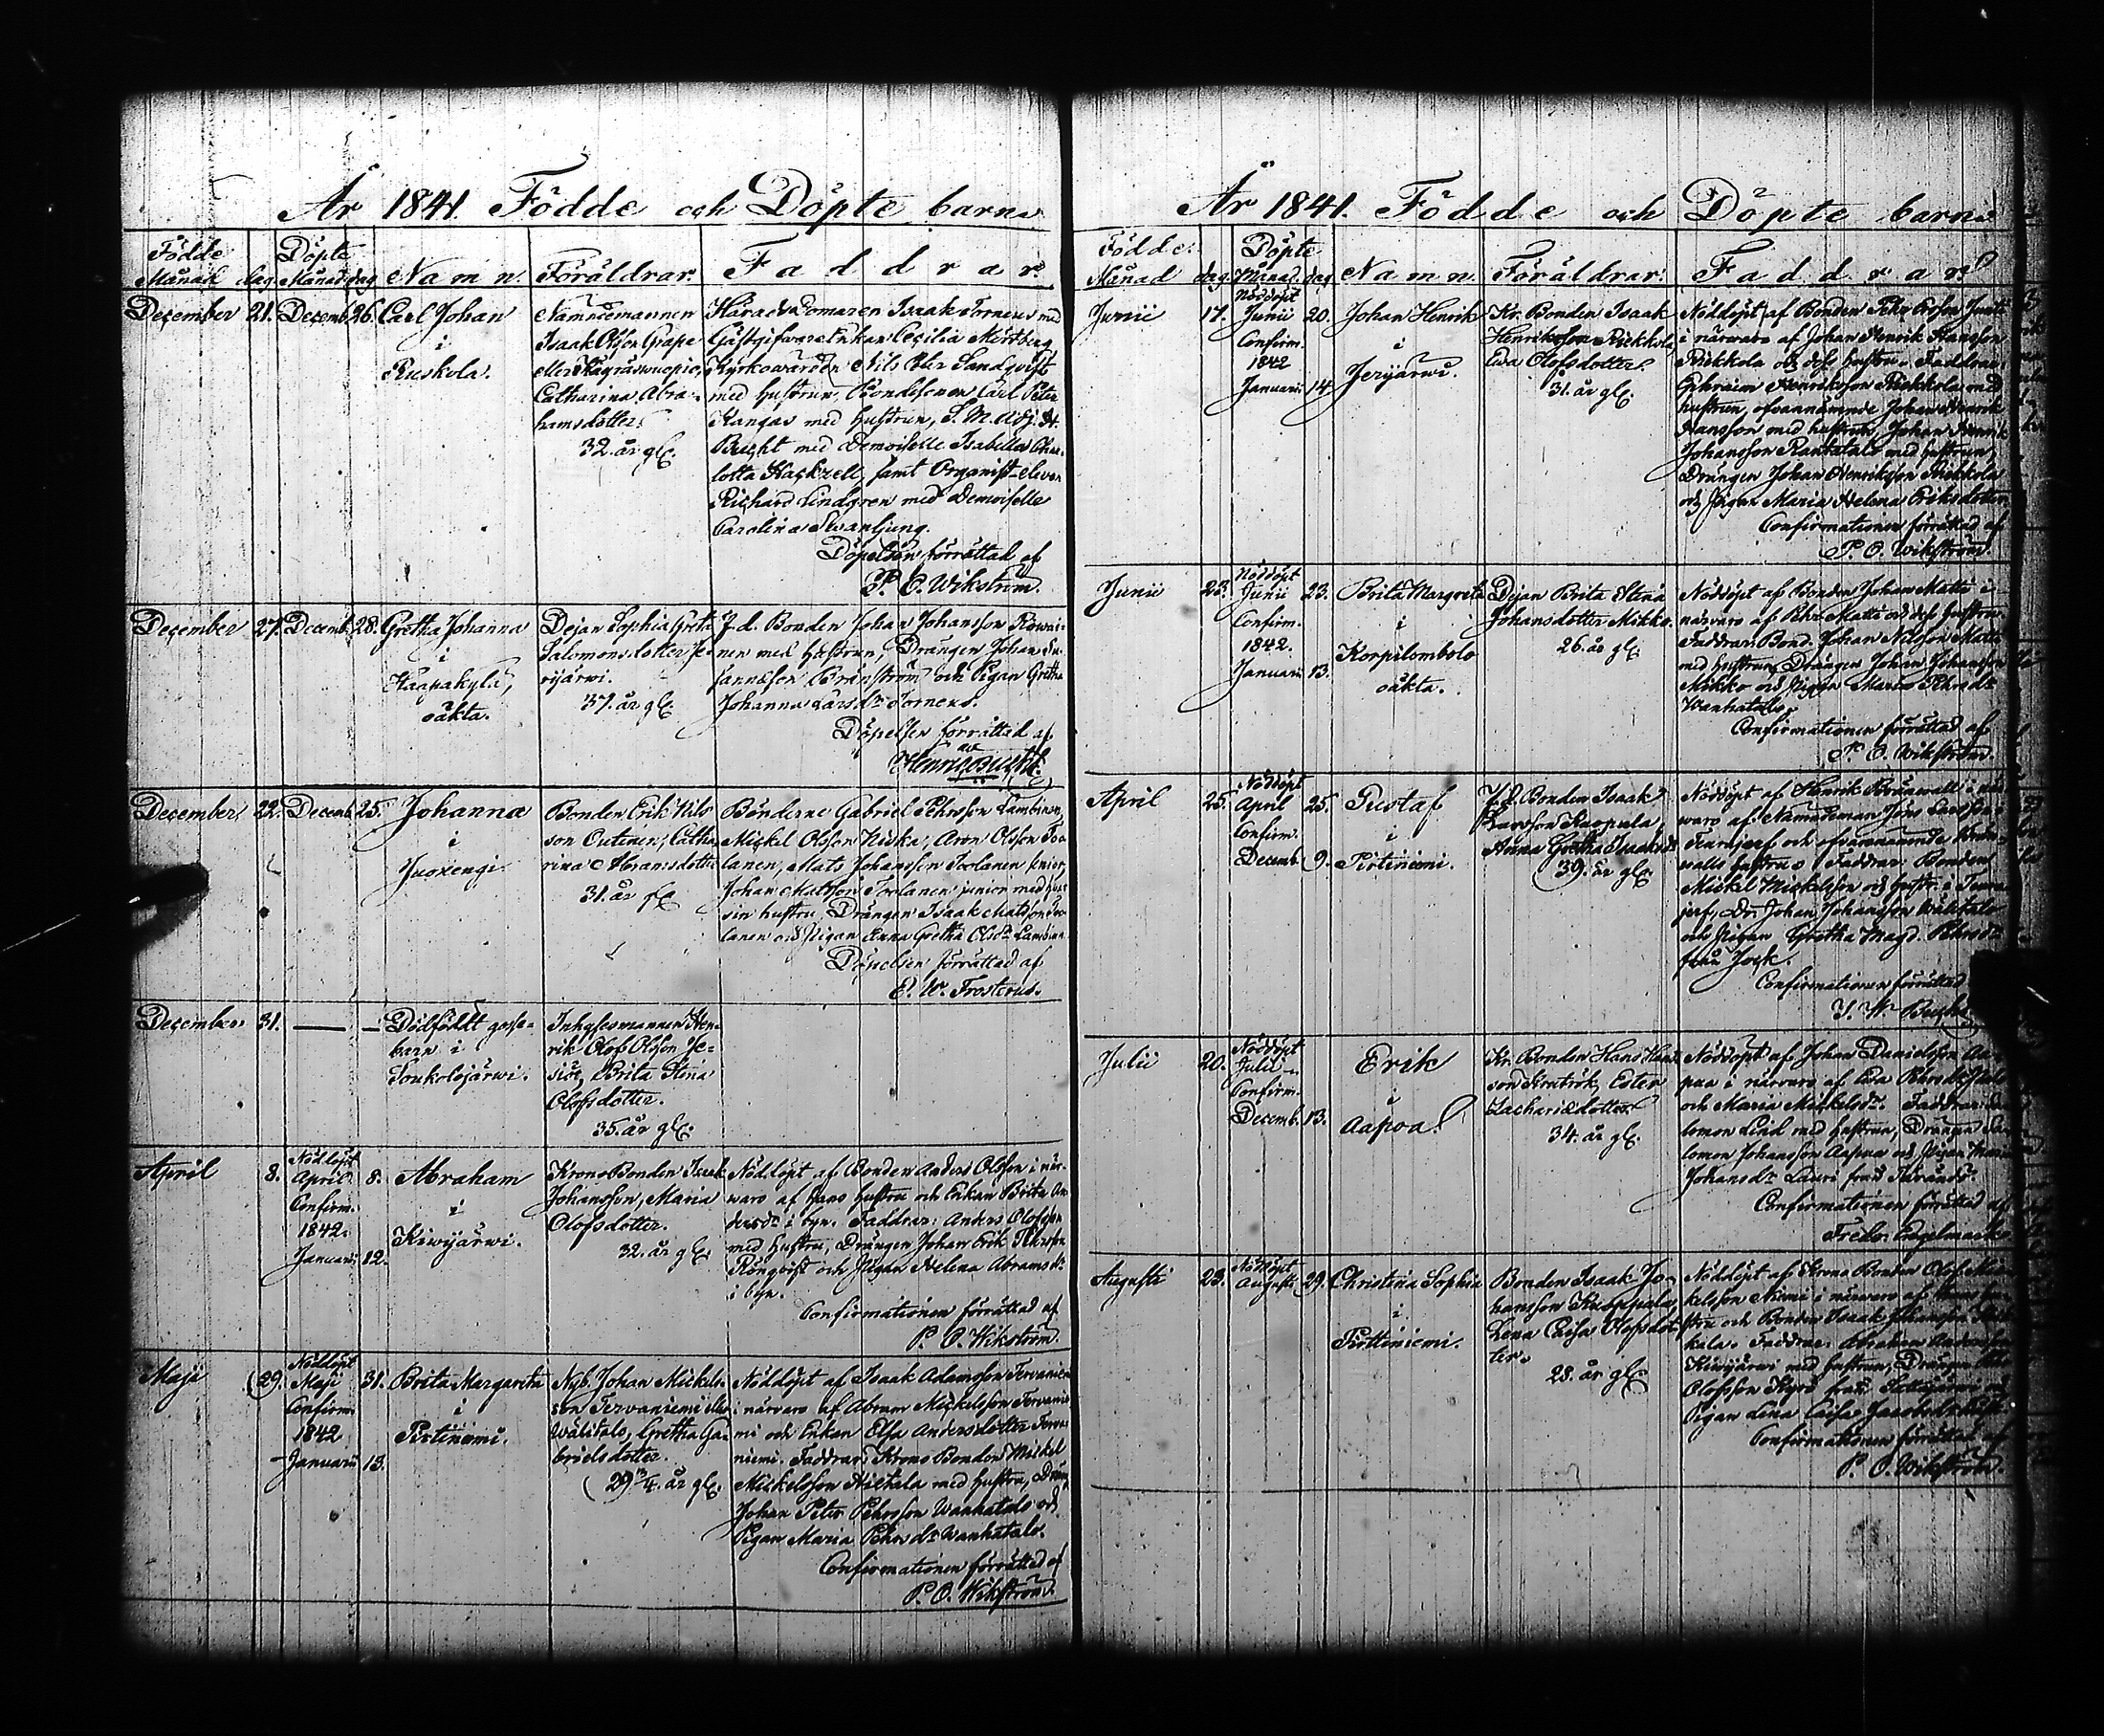 År 1841. Födde och Döpte barn.
Födde Döpte
Månad dag. Månad dag Namn. Föräldrar. Faddrar.
December 21. Decemb. 26. Carl Johan
i
Ruskola.
Nämndemannen
Isaak Olsson Grape
eller
Catharina Abra-
hamsdotter.
32. år gl.
Häradsdomaren Isaak Torneus med
Gästgifvare Enkan Cecilia Mörtberg
Kyrkowärden Nils Petter Sandqvist
med hustrun, Bondesonen Carl Peter
Kangas med hustrun, S. M. Adj. H.
Bucht med Demoiselle Isabella Char-
lotta Hackzell, samt Organist-eleven
Richard Lindgren med Demoiselle
Carolina Swanljung.
Döpelsen förrättad af
P. O. Wikström.
December 27. Decemb. 28. Gretha Johanna
i
Haapakylä,
oäkta.
Dejan Sophia Greta
Salomonsdotter
37. år gl.
F. d. Bonden Johan Johansson
nen med hustrun, Drängen Johan
Bränström och Pigan Gretha
Johanna Larsdr Torneus.
Döpelsen förrättad af
Henric Bucht.
December 22. Decemb. 25. Johanna
i
Juoxengi
Bonden Erik Nils
son Outinen, Catha
rina Abramsdotter
31. år gl.
Bönderne Gabriel Pehrsson Lambinen,
Mickel Olsson Niska, Aron Olsson
lanen, Mats Johansson Toolanen senior,
Johan Matsson Toolanen junior med
sin hustru, Drängen Isaak Matsson Too
lanen och Pigan Anna Gretha Olsdr
Döpelsen förrättad af
E. W. Frosterus.
December 31. — — Dödfödt gosse-
barn i
Soukolojärwi.
Inhysesmannen Hen-
rik Olof Olsson
Brita Stena
Olofsdotter.
35. år gl.
April 8. Nöddöpt
April 8.
Confirm.
1842.
Januarii 12.
Abraham
i
Kiwijärwi.
Krono Bonden Isaak
Johansson, Maria
Olofsdotter.
32. år gl.
Nöddöpt af Bonden Anders Olsson i när-
waro af hans hustru och Enkan Brita An
dersdr i byn. Faddrar: Anders Olofsson
med hustru, Drängen Johan Erik Pehrsson
Rönqvist och Pigan Helena Abramsdr
i byn.
Confirmationen förrättad af
P. O. Wikström.
Maji 29. Nöddöpt
Maji 31.
Confirm.
1842.
Januarii 13.
Brita Margareta
i
Pirtiniemi.
Nyb. Johan Mickels
son Terwaniemi eller
Wälitalo, Gretha Ga-
brielsdotter.
29 år gl.
Nöddöpt af Isaak Adamsson Terwaniemi
i närwaro af Abram Mickelsson Terwanie
mi och Enkan Elsa Andersdotter Terwa
niemi. Faddrar: Krono Bonden Mickel
Mickelsson Hietala med hustru, Dräng
Johan Peter Pehrsson Wanhatalo och
Pigan Maria Pehrsdr Wanhatalo.
Confirmationen förrättad af
P. O. Wikström.
År 1841. Födde och Döpte barn.
Födde Döpte
Månad dag. Månad. dag Namn. Föräldrar. Faddrar.
Junii 17. Nöddöpt
Junii 20.
Confirm.
1842
Januarii 14.
Johan Henrik
i
Jerijärwi.
Kr. Bonden Isaak
Henriksson Rickkola
Ewa Olofsdotter.
31. år gl.
Nöddöpt af Bonden Pehr Ersson
i närwaro af Johan Henrik Hansson
Rickkola och dess hustru. Faddrar:
Ephraim Henriksson Rickkola med
hustrun, ofvannämnde Johan Henrik
Hansson med hustrun, Johan Henrik
Johansson Rautatalo med hustrun,
Drängen Johan Henriksson Rickkola
och Pigan Maria Helena Eriksdotter
Confirmationen förrättad af
P. O. Wikström.
Junii 23. Nöddöpt
Junii 23.
Confirm.
1842.
Januarii 13.
Brita Margreta
i
Korpilombolo
oäkta.
Dejan Brita Stina
Johansdotter Mikko.
26. år gl.
Nöddöpt af Bonden Johan Matti i
närwaro af Pehr Matti och dess hustru.
Faddrar: Bond. Johan Nilsson Matti
med hustrun, Drängen Johan Johansson
Mikko och Pigan Maria Pehrsdr
Wanhatalo.
Confirmationen förrättad af
P. O. Wikström.
April 25. Nöddöpt
April 25.
Confirm.
Decemb. 9.
Gustaf
i
Pirtiniemi.
Bonden Isaak
Larsson Kuopula
Anna Gretha Isaksdr
39. år gl.
Nöddöpt af Henrik Brännwall i när
waro af Nämndeman Jöns Larsson i
och ofvannämnde Bränn-
walls hustru. Faddrar: Bonden
Mickel Mickelsson och hustr. i
Dr. Johan Johansson Wälitalo
och Pigan Gretha Magd. Pehrsdr
från Jock.
Confirmationen förrättad
Julii 20. Nöddöpt
Julii
Confirm.
Decemb. 13.
Erik
i
Aapoa.
Kr. Bonden Hans Hans
son Ester
Zachariædotter
34. år gl.
Nöddöpt af Johan Danielsson
i närwaro af Ewa
och Maria Mickelsdr. Faddrar:
lomon Lind med hustrun, Drängen
lomon Johansson Aapua och Pigan Maria
Johansdr Lauri från
Confirmationen förrättad af
Fredr. Engelmark
Augusti 23. Nöddöpt
Augusti 29.
Christina Sophia
i
Pirttiniemi.
Bonden Isaak Jo-
hansson Kuoppala,
Lena Caisa Olofsdot
ter.
28. år gl.
Nöddöpt af Krono Bonden Olof Mic
kelsson Niemi i närwaro af
stru och Bonden Isaak Johansson
kala. Faddrar: Abraham Andersson
Kiwijärwi med hustrun, Drängen
Olofsson Kyrö från Sattajärwi och
Pigan Lena Caisa
Confirmationen förrättad af
P. O. Wikström